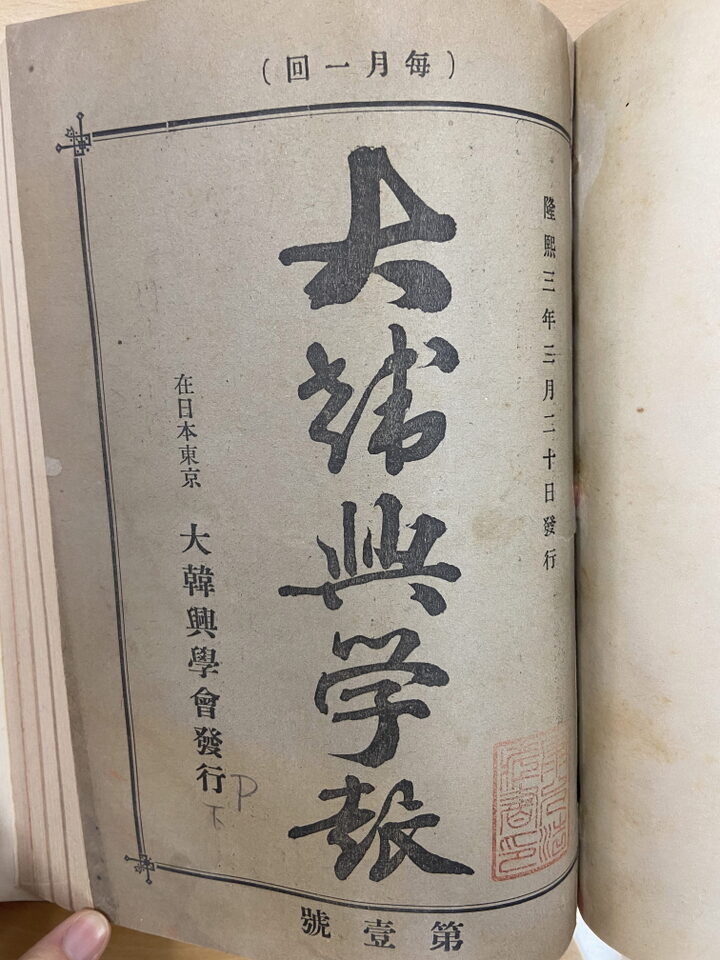 (每月一回)
隆熙三年三月二十日發行
大韓興学報
在日本東京 大韓興學會發行
第壹號
P
T